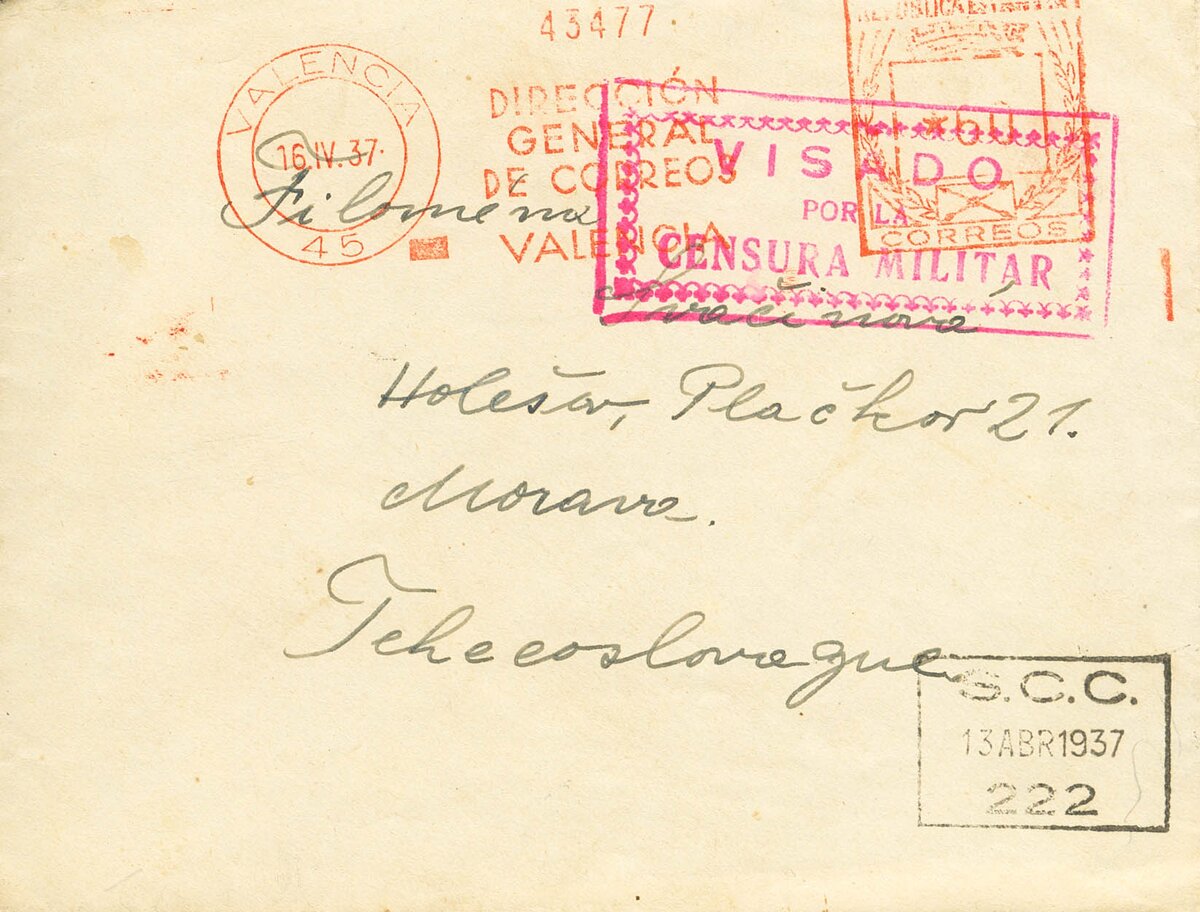 43477
REPUBLICA ESPAÑOLA
VALENCIA
16 IV. 37.
45
DIRECCIÓN
GENERAL
DE CORREOS
VALENCIA
*60
CORREOS
VISADO
POR LA
CENSURA MILITAR
Filoména
Kvačinová
Holešov, Plačkov 21.
Morava.
Tchecoslovaque
S.C.C.
13 ABR 1937
222